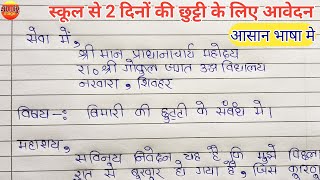 स्कूल से 2 दिनों की छुट्टी के लिए आवेदन
आसान भाषा मे
सेवा में,
श्री मान प्राधानाचार्य महोदय
रा० श्री गोकुल जगत उच्च विद्यालय
नरवारा, शिवहर
विषय -: बिमारी की छुट्टी के संबंध में।
महाशय,
सविनय निवेदन यह है कि मुझे पिछला
रात से बुखार हो गया है, जिस कारण